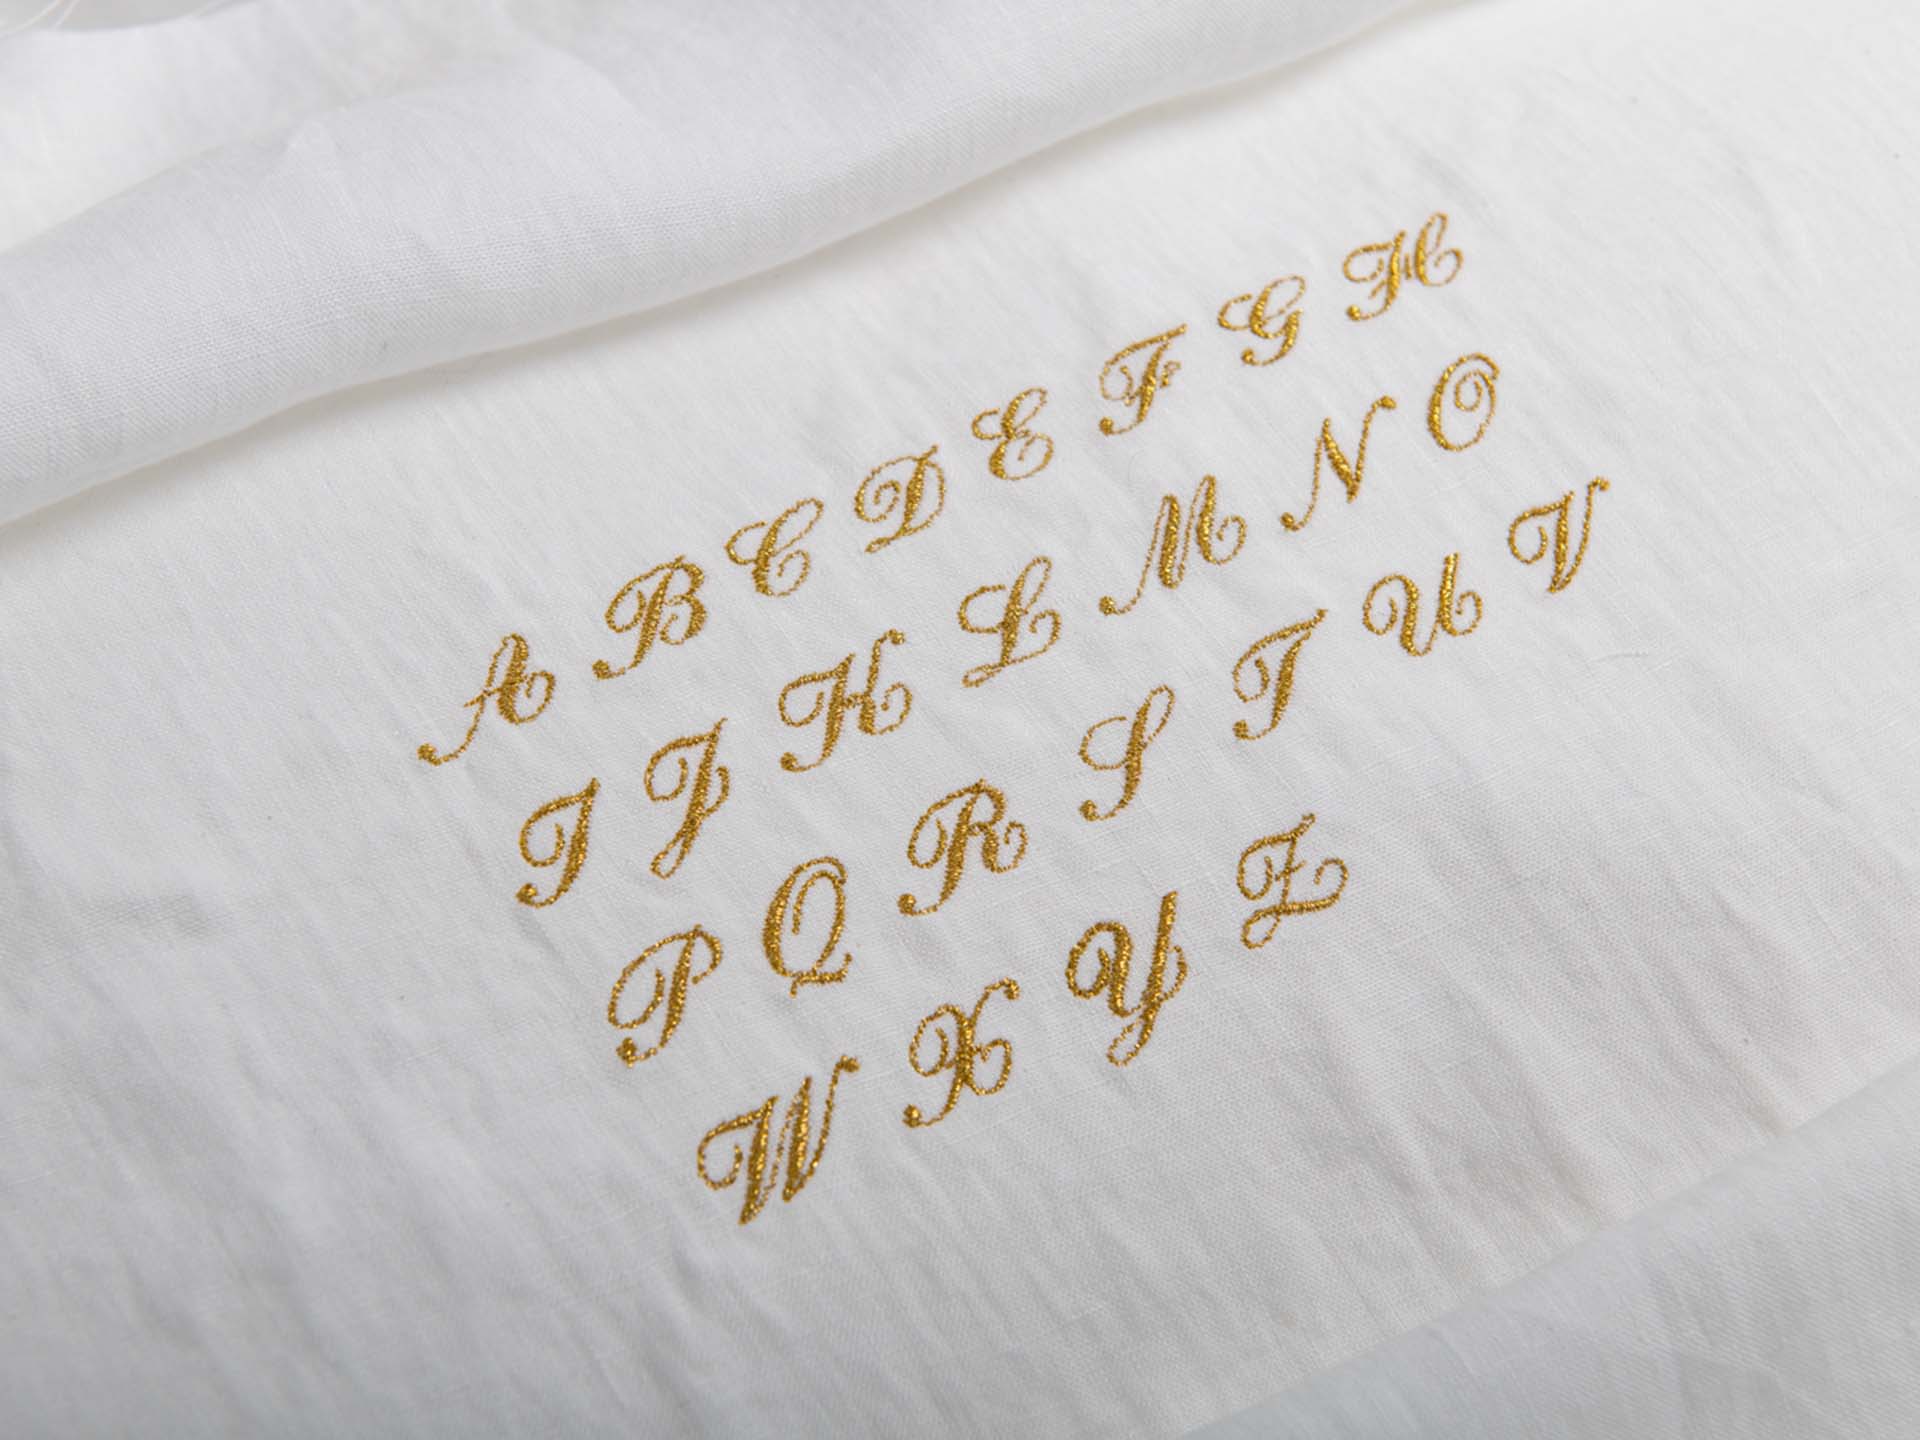 A B C D E F G H
I J K L M N O
P Q R S T U V
W X Y Z